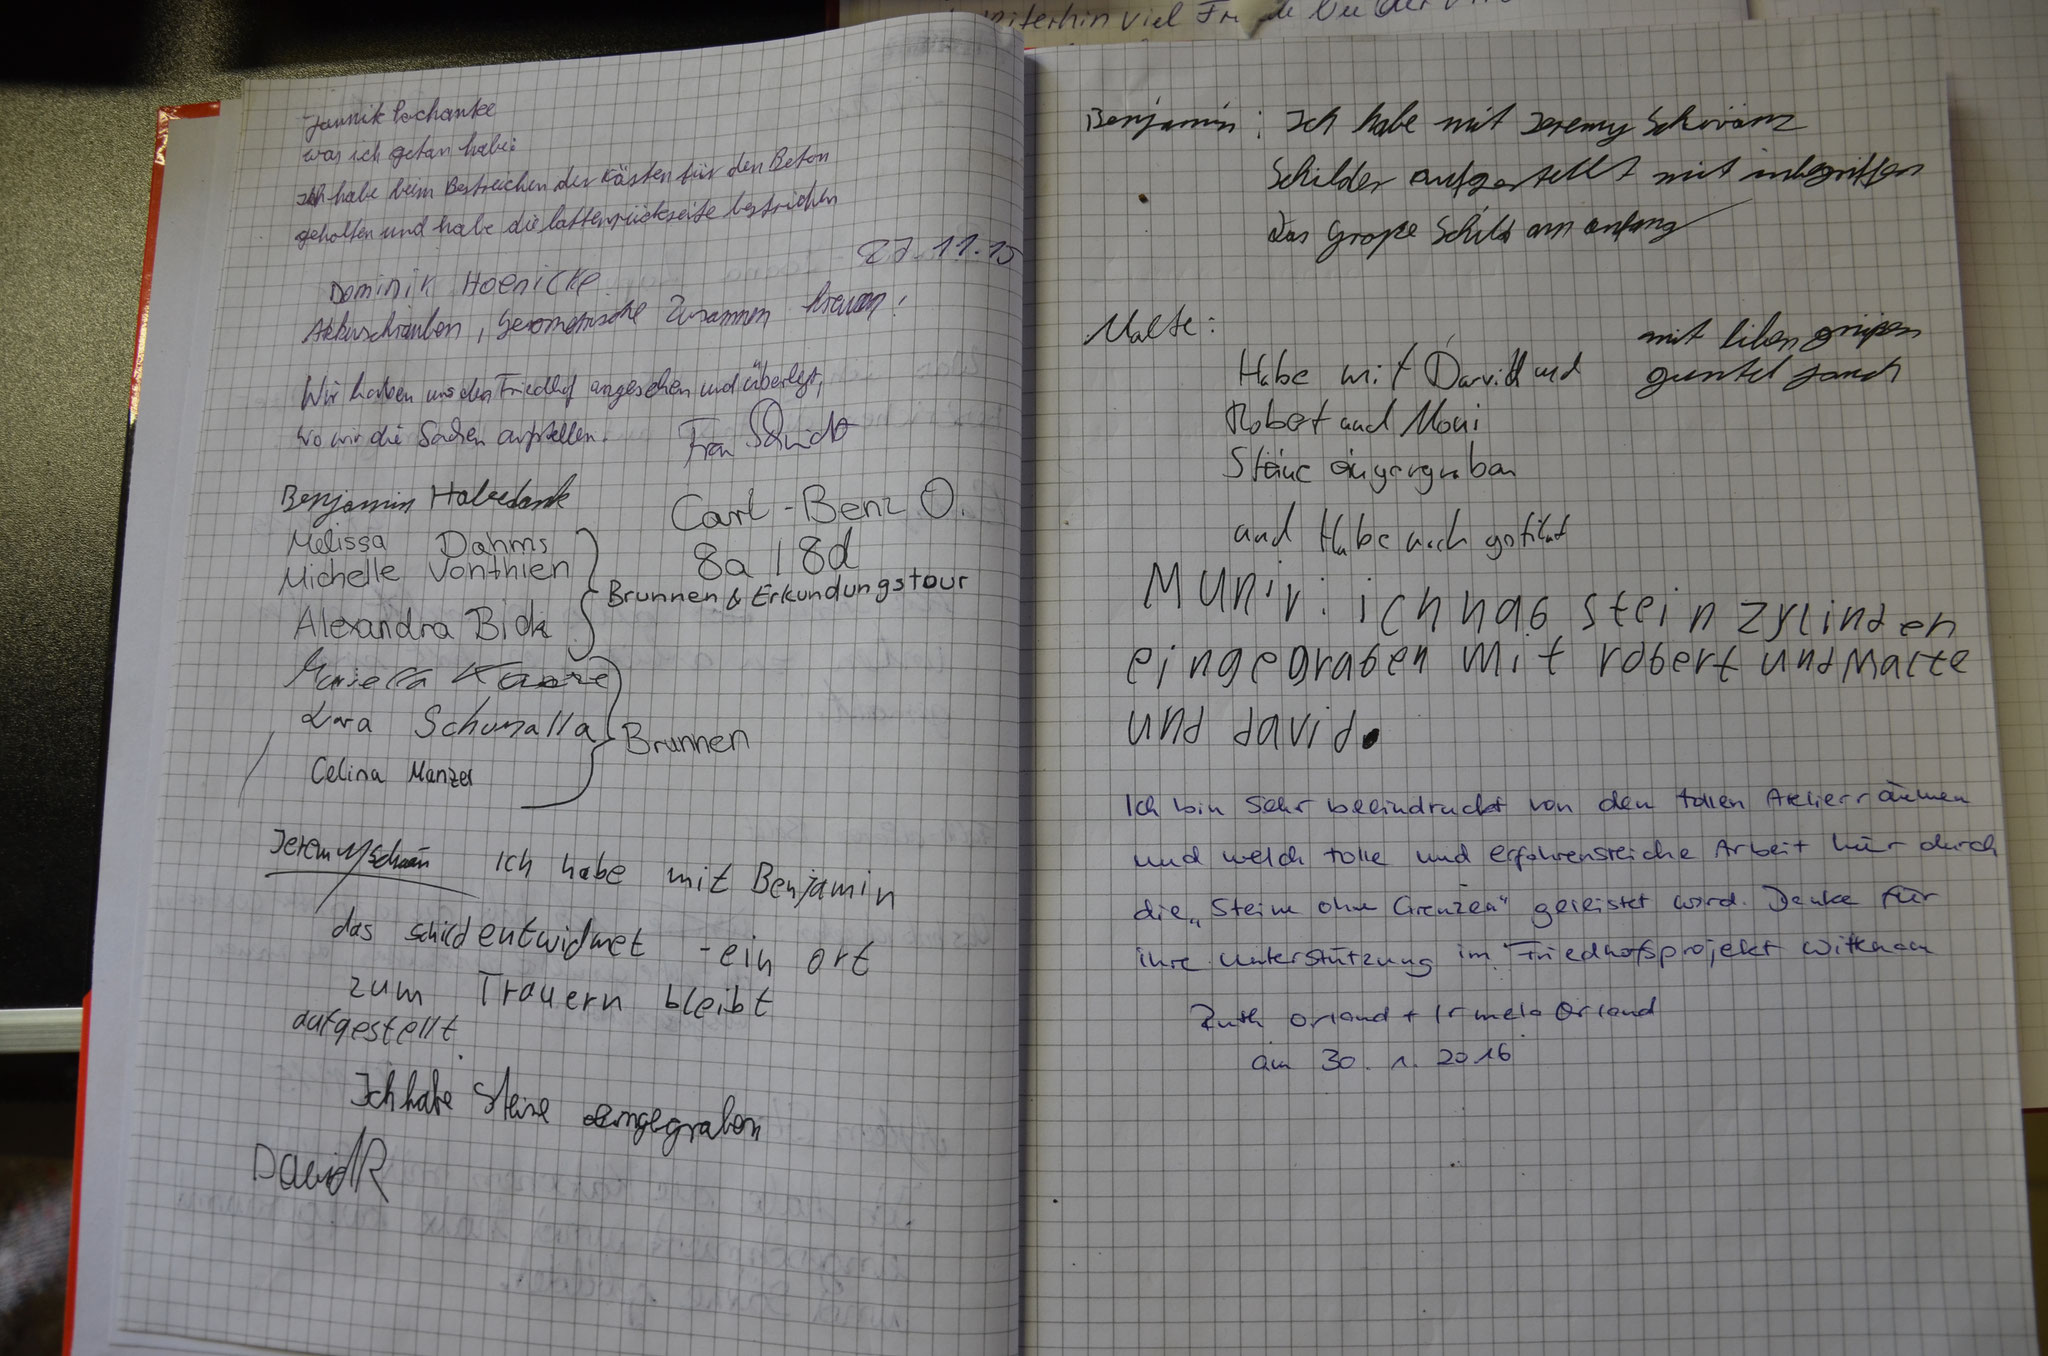 weiterhin viel
Jannik Pochanke
was ich getan habe:
Ich habe beim Bestreichen der Kästen für den Beton
geholfen und habe die lattenrückseite bestrichen
27.11.15
Dominik Hoenicke
Akkuschrauben, Geometrische Zusammen
Wir haben uns den Friedhof angesehen und überlegt,
wo wir die Sachen aufstellen.
Frau Schmidt
Benjamin Habedank
Melissa Dahms
Michelle Vonthien
Alexandra Bick
Brunnen & Erkundungstour
Carl-Benz O.
8a / 8d
Mariella
Lara Schumalla
Celina Manzel
Brunnen
Jeremy ich habe mit Benjamin
das schild entwidmet - ein ort
zum Trauern bleibt
aufgestellt.
Ich habe Steine eingegraben
David R
Benjamin: Ich habe mit Jeremy
Schilder aufgestellt mit inbegriffen
das Große Schild am anfang
Malte:
Habe mit David und
Robert und Moni
Steine eingegraben
und Habe auch gefilmt
mit
Munir: ich hab stein zylinder
eingegraben mit robert und Malte
und david.
Ich bin sehr beeindruckt von den tollen Atelierräumen
und welch tolle und erfahrensreiche Arbeit hier durch
die „Steine ohne Grenzen" geleistet wird. Danke für
ihre Unterstützung im Friedhofsprojekt
Ruth Orland + Irmela Orland
am 30. 1. 2016